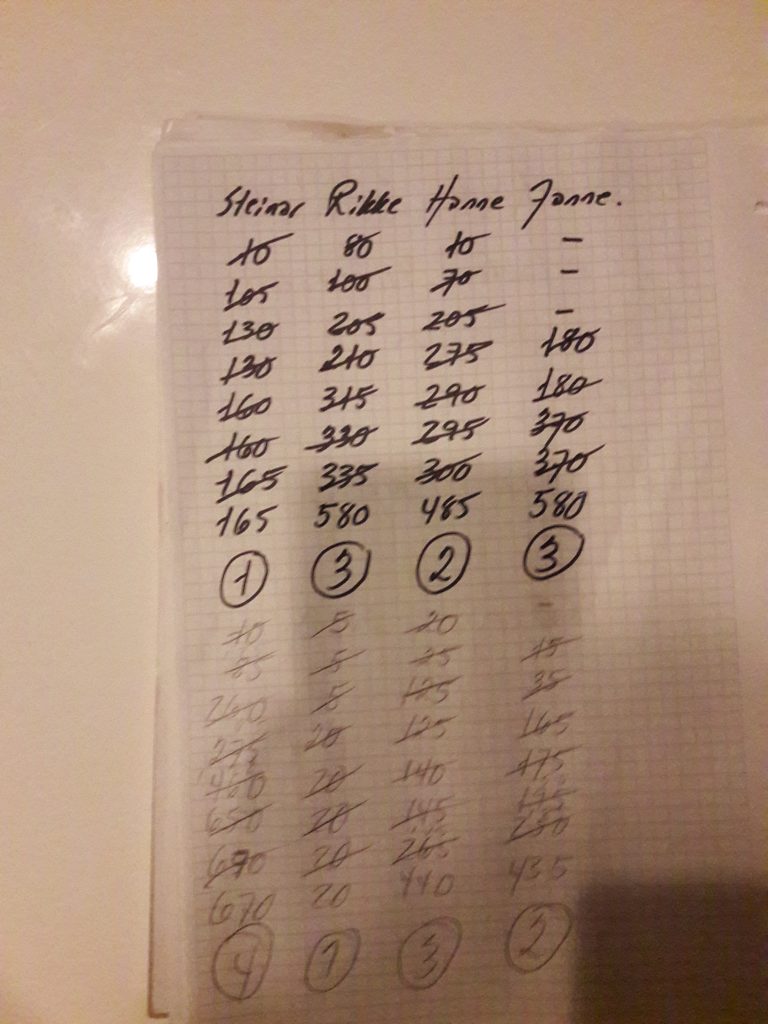 Steinar Rikke Hanne Janne.
10 80 10 –
105 100 70 –
130 205 205 –
130 210 275 180
160 315 290 180
160 330 295 370
165 335 300 370
165 580 485 580
1 3 2 3
10 5 20 –
85 5 25 15
260 5 125 35
275 20 125 165
460 20 140 175
650 20 145 195
670 20 265 280
670 20 440 435
4 1 3 2